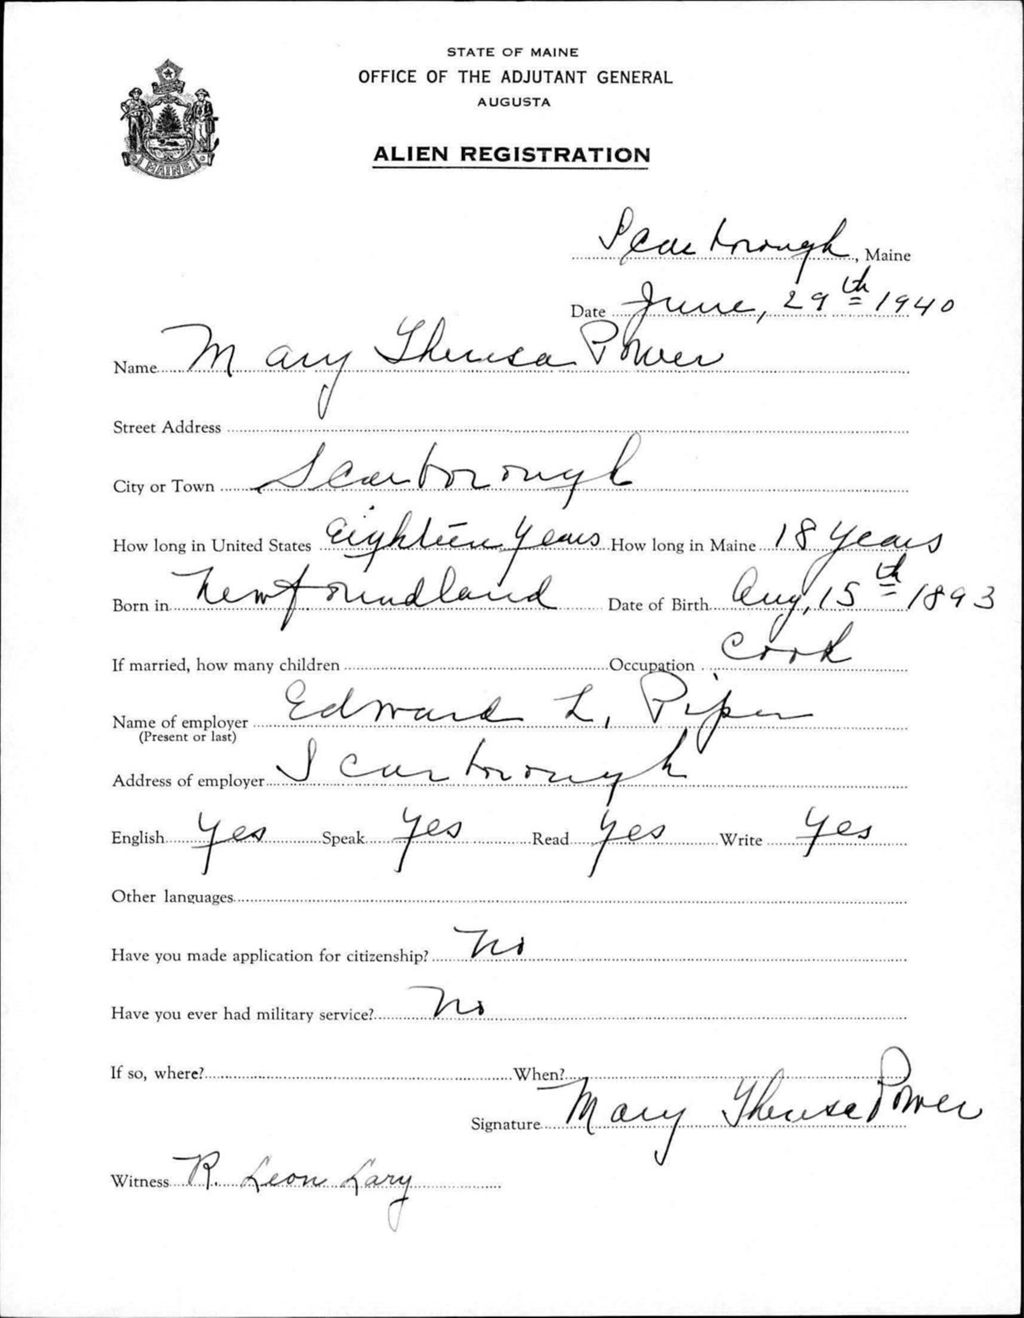 STATE OF MAINE
OFFICE OF THE ADJUTANT GENERAL
AUGUSTA
ALIEN REGISTRATION
MAINE
Scarborough, Maine
Date June, 29th 1940
Name Mary Theresa Power
Street Address
City or Town Scarborough
How long in United States Eighteen Years How long in Maine 18 Years
Born in Newfoundland Date of Birth Aug, 15th 1893
If married, how many children Occupation Cook
Name of employer Edward L. Piper
(Present or last)
Address of employer Scarborough
English Yes Speak Yes Read Yes Write Yes
Other languages
Have you made application for citizenship? No
Have you ever had military service? No
If so, where? When?
Signature Mary Theresa Power
Witness R. Leon Lary